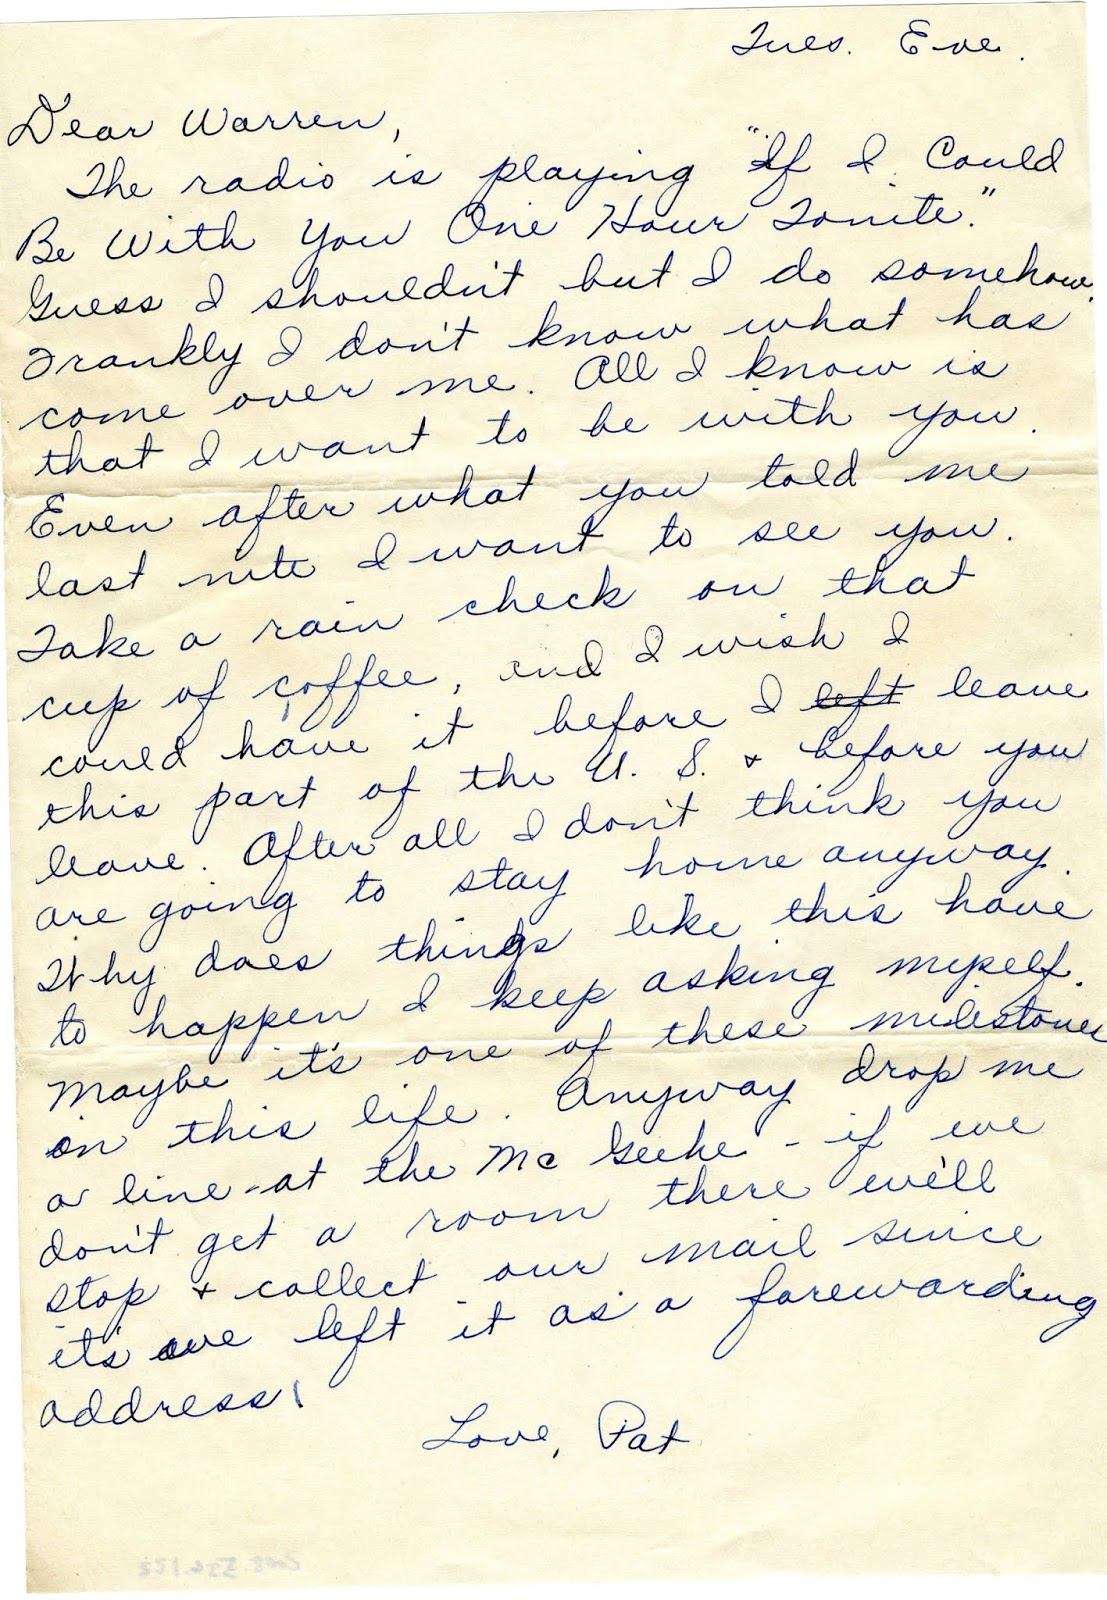 Tues. Eve.
Dear Warren,
The radio is playing "If I Could
Be With You One Hour Tonite."
Guess I shouldn't but I do somehow.
Frankly I don't know what has
come over me. All I know is
that I want to be with you.
Even after what you told me
last nite I want to see you.
Take a rain check on that
cup of coffee, and I wish I
could have it before I left leave
this part of the U. S. & before you
leave. After all I don't think you
are going to stay home anyway.
Why does things like this have
to happen I keep asking myself.
Maybe it's one of these milestones
in this life. Anyway drop me
a line - at the Mc Geehe - if we
don't get a room there we'll
stop & collect our mail since
it's we left it as a forewarding
address!
Love, Pat